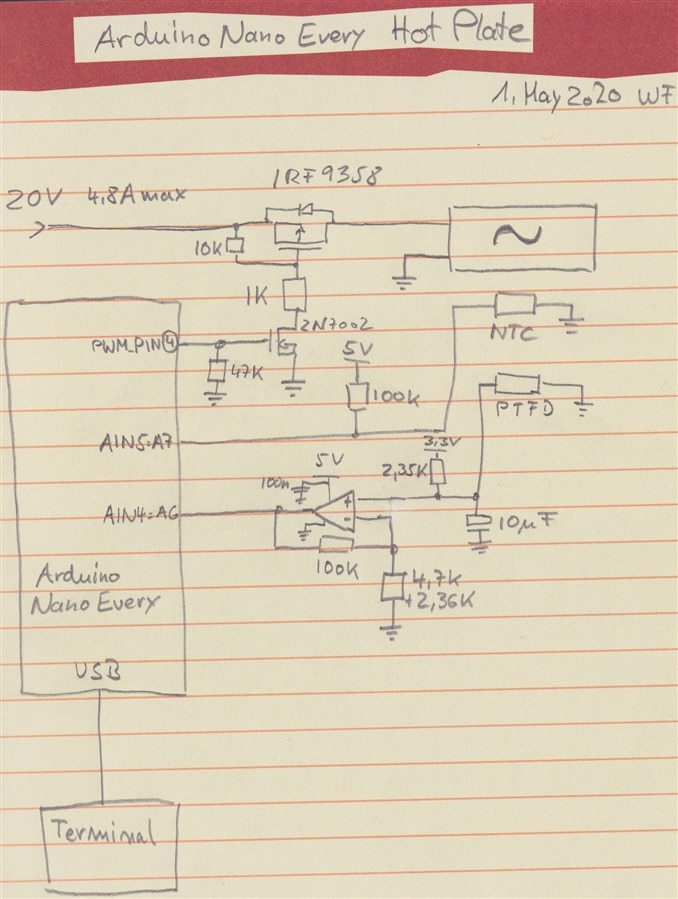 Arduino Nano Every Hot Plate
1. May 2020 WF
IRF9358
20V 4,8A max
10K
~
1K
2N7002
NTC
PWM_PIN 4
5V
47K
100K
PTFD
AIN5=A7
3,3V
5V
2,35K
100n
+
AIN4=A6
-
10µF
100K
4,7K
+2,36K
Arduino
Nano Every
USB
Terminal